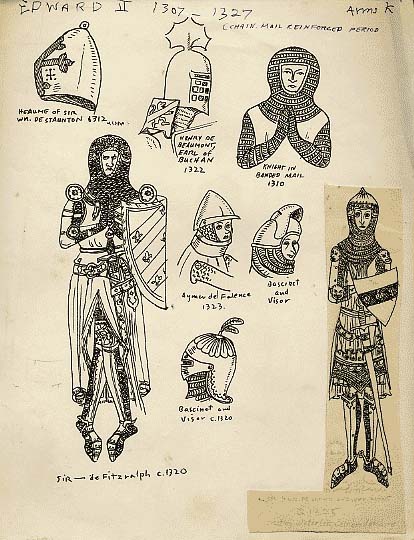 EDWARD II 1307 - 1327
Arms K
(CHAIN MAIL REINFORCED PERIOD
HEAUME OF SIR
WM. DE STAUNTON 1312
HENRY DE
BEAUMONT,
EARL OF
BUCHAN
1322
KNIGHT IN
BANDED MAIL
1310
Aymer de Valence
1323.
Bascinet
and
Visor
Bascinet and
Visor c.1320
SIR — de Fitzralph c.1320